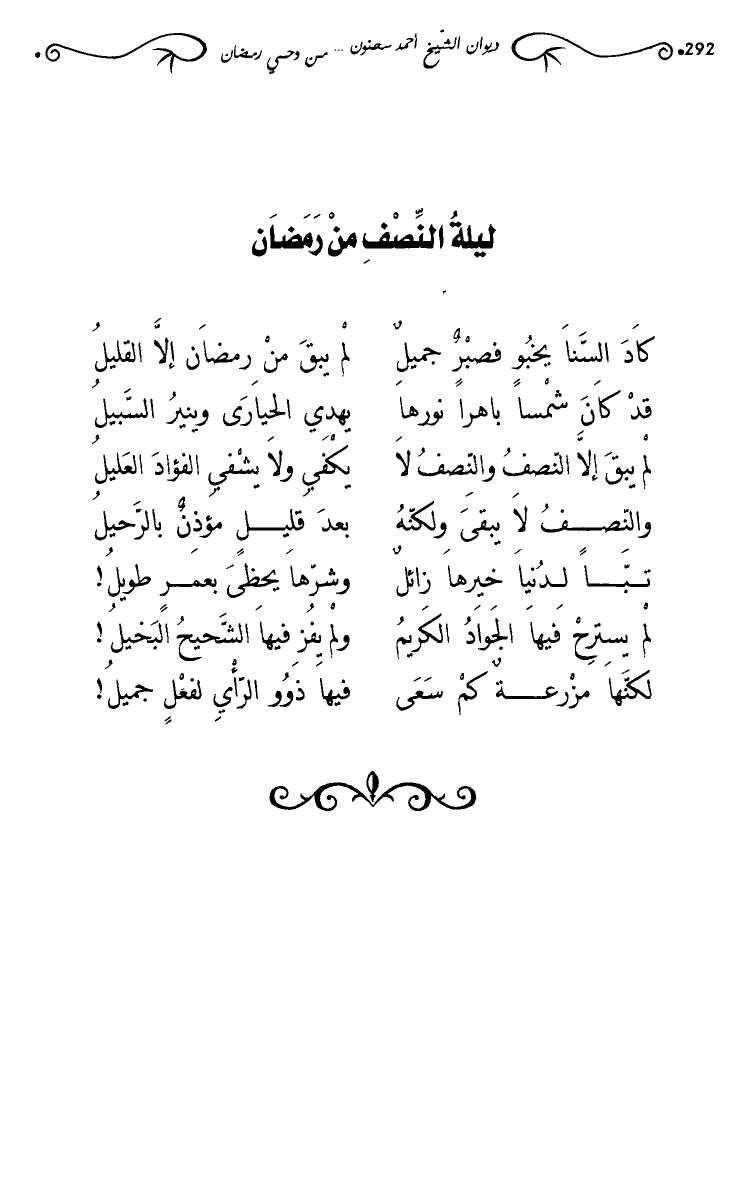 292 ديوان الشّيخ أحمد سحنون ... من وحي رمضان
ليلةُ النِّصْفِ منْ رَمَضاَن
كاَدَ السَّناَ يخبُو فصبْرٌ جميلٌ لمْ يبقَ منْ رمضاَن إلاَّ القليلُ
قدْ كاَنَ شمْساً باهراً نورهاَ يهدي الحياَرَى وينيرُ السَّبيلُ
لمْ يبقَ إلاَّ النّصفُ والنّصفُ لاَ يكْفيِ ولاَ يشْفيِ الفؤادَ العَليلُ
والنّصـــفُ لاَ يبقىَ ولكنّهُ بعدَ قليـــلٍ مؤذنٌ بالرَّحيلُ
تبّـــاً لـدُنياَ خيرهاَ زائلٌ وشرّهاَ يحظىَ بعمـرٍ طويلُ!
لمْ يسترِحْ فيهاَ الجَوادُ الكَريمُ ولمْ يفُزِ فيهاَ الشَّحيحُ البَخيلُ!
لكنّهاَ مزْرعـــةٌ كمْ سَعَى فيهاَ ذَوُو الرّأْيِ لفعْلٍ جميلُ!